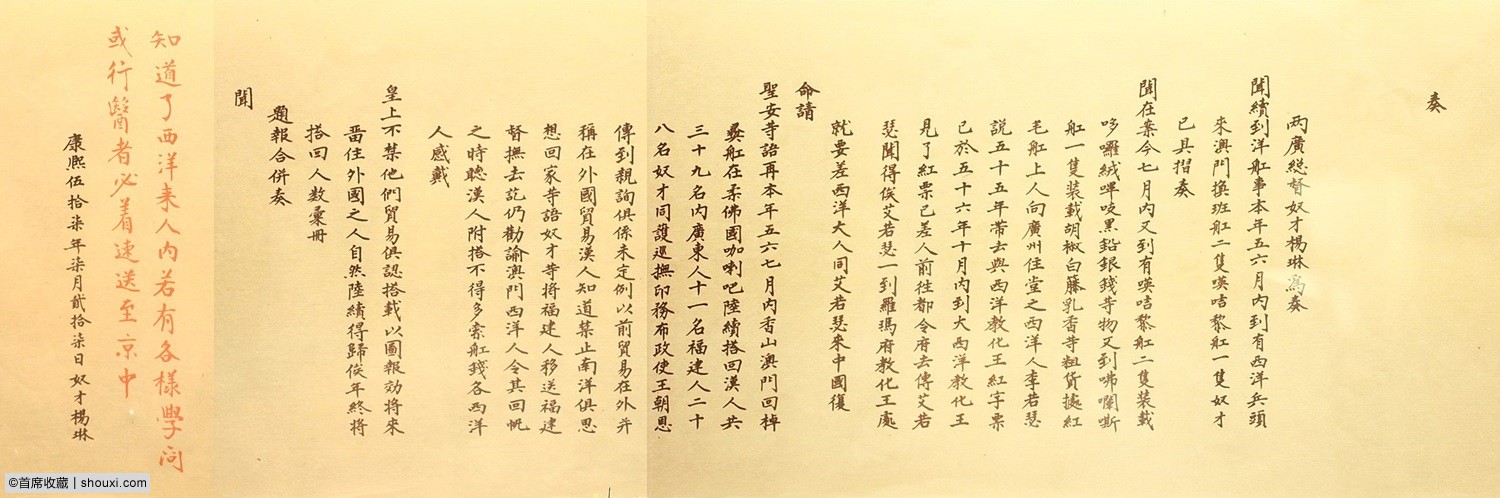 奏
两廣総督奴才楊琳為奏
聞續到洋舡事本年五六月內到有西洋兵頭
來澳門換班舡二隻𠸄咭黎舡一隻奴才
已具摺奏
聞在案今七月內又到有𠸄咭黎舡二隻裝載
哆囉絨嗶吱黑鉛銀錢等物又到咈囒哂
舡一隻裝載胡椒白籐乳香等粗貨據紅
毛舡上人向廣州住堂之西洋人李若瑟
說五十五年帶去與西洋教化王紅字票
已於五十六年十月內到大西洋教化王
見了紅票已差人前往都令府去傳艾若
瑟聞得俟艾若瑟一到羅瑪府教化王處
就要差西洋大人同艾若瑟來中國復
命請
聖安等語再本年五六七月內香山澳門回棹
彞舡在柔佛國咖喇吧陸續搭回漢人共
三十九名內廣東人十一名福建人二十
八名奴才同護巡撫印務布政使王朝恩
傳到親詢俱係未定例以前貿易在外并
稱在外國貿易漢人知道禁止南洋俱思
想回家等語奴才等將福建人移送福建
督撫去訖仍勸諭澳門西洋人令其回帆
之時聽漢人附搭不得多索舡錢各西洋
人感戴
皇上不禁他們貿易俱認搭載以圖報効將來
畱住外國之人自然陸續得歸俟年終將
搭回人數彙冊
題報合併奏
聞
知道了西洋来人內若有各樣學问
或行醫者必着速送至京中
康熙伍拾柒年柒月貳拾柒日奴才楊琳
©首席收藏 | shouxi.com